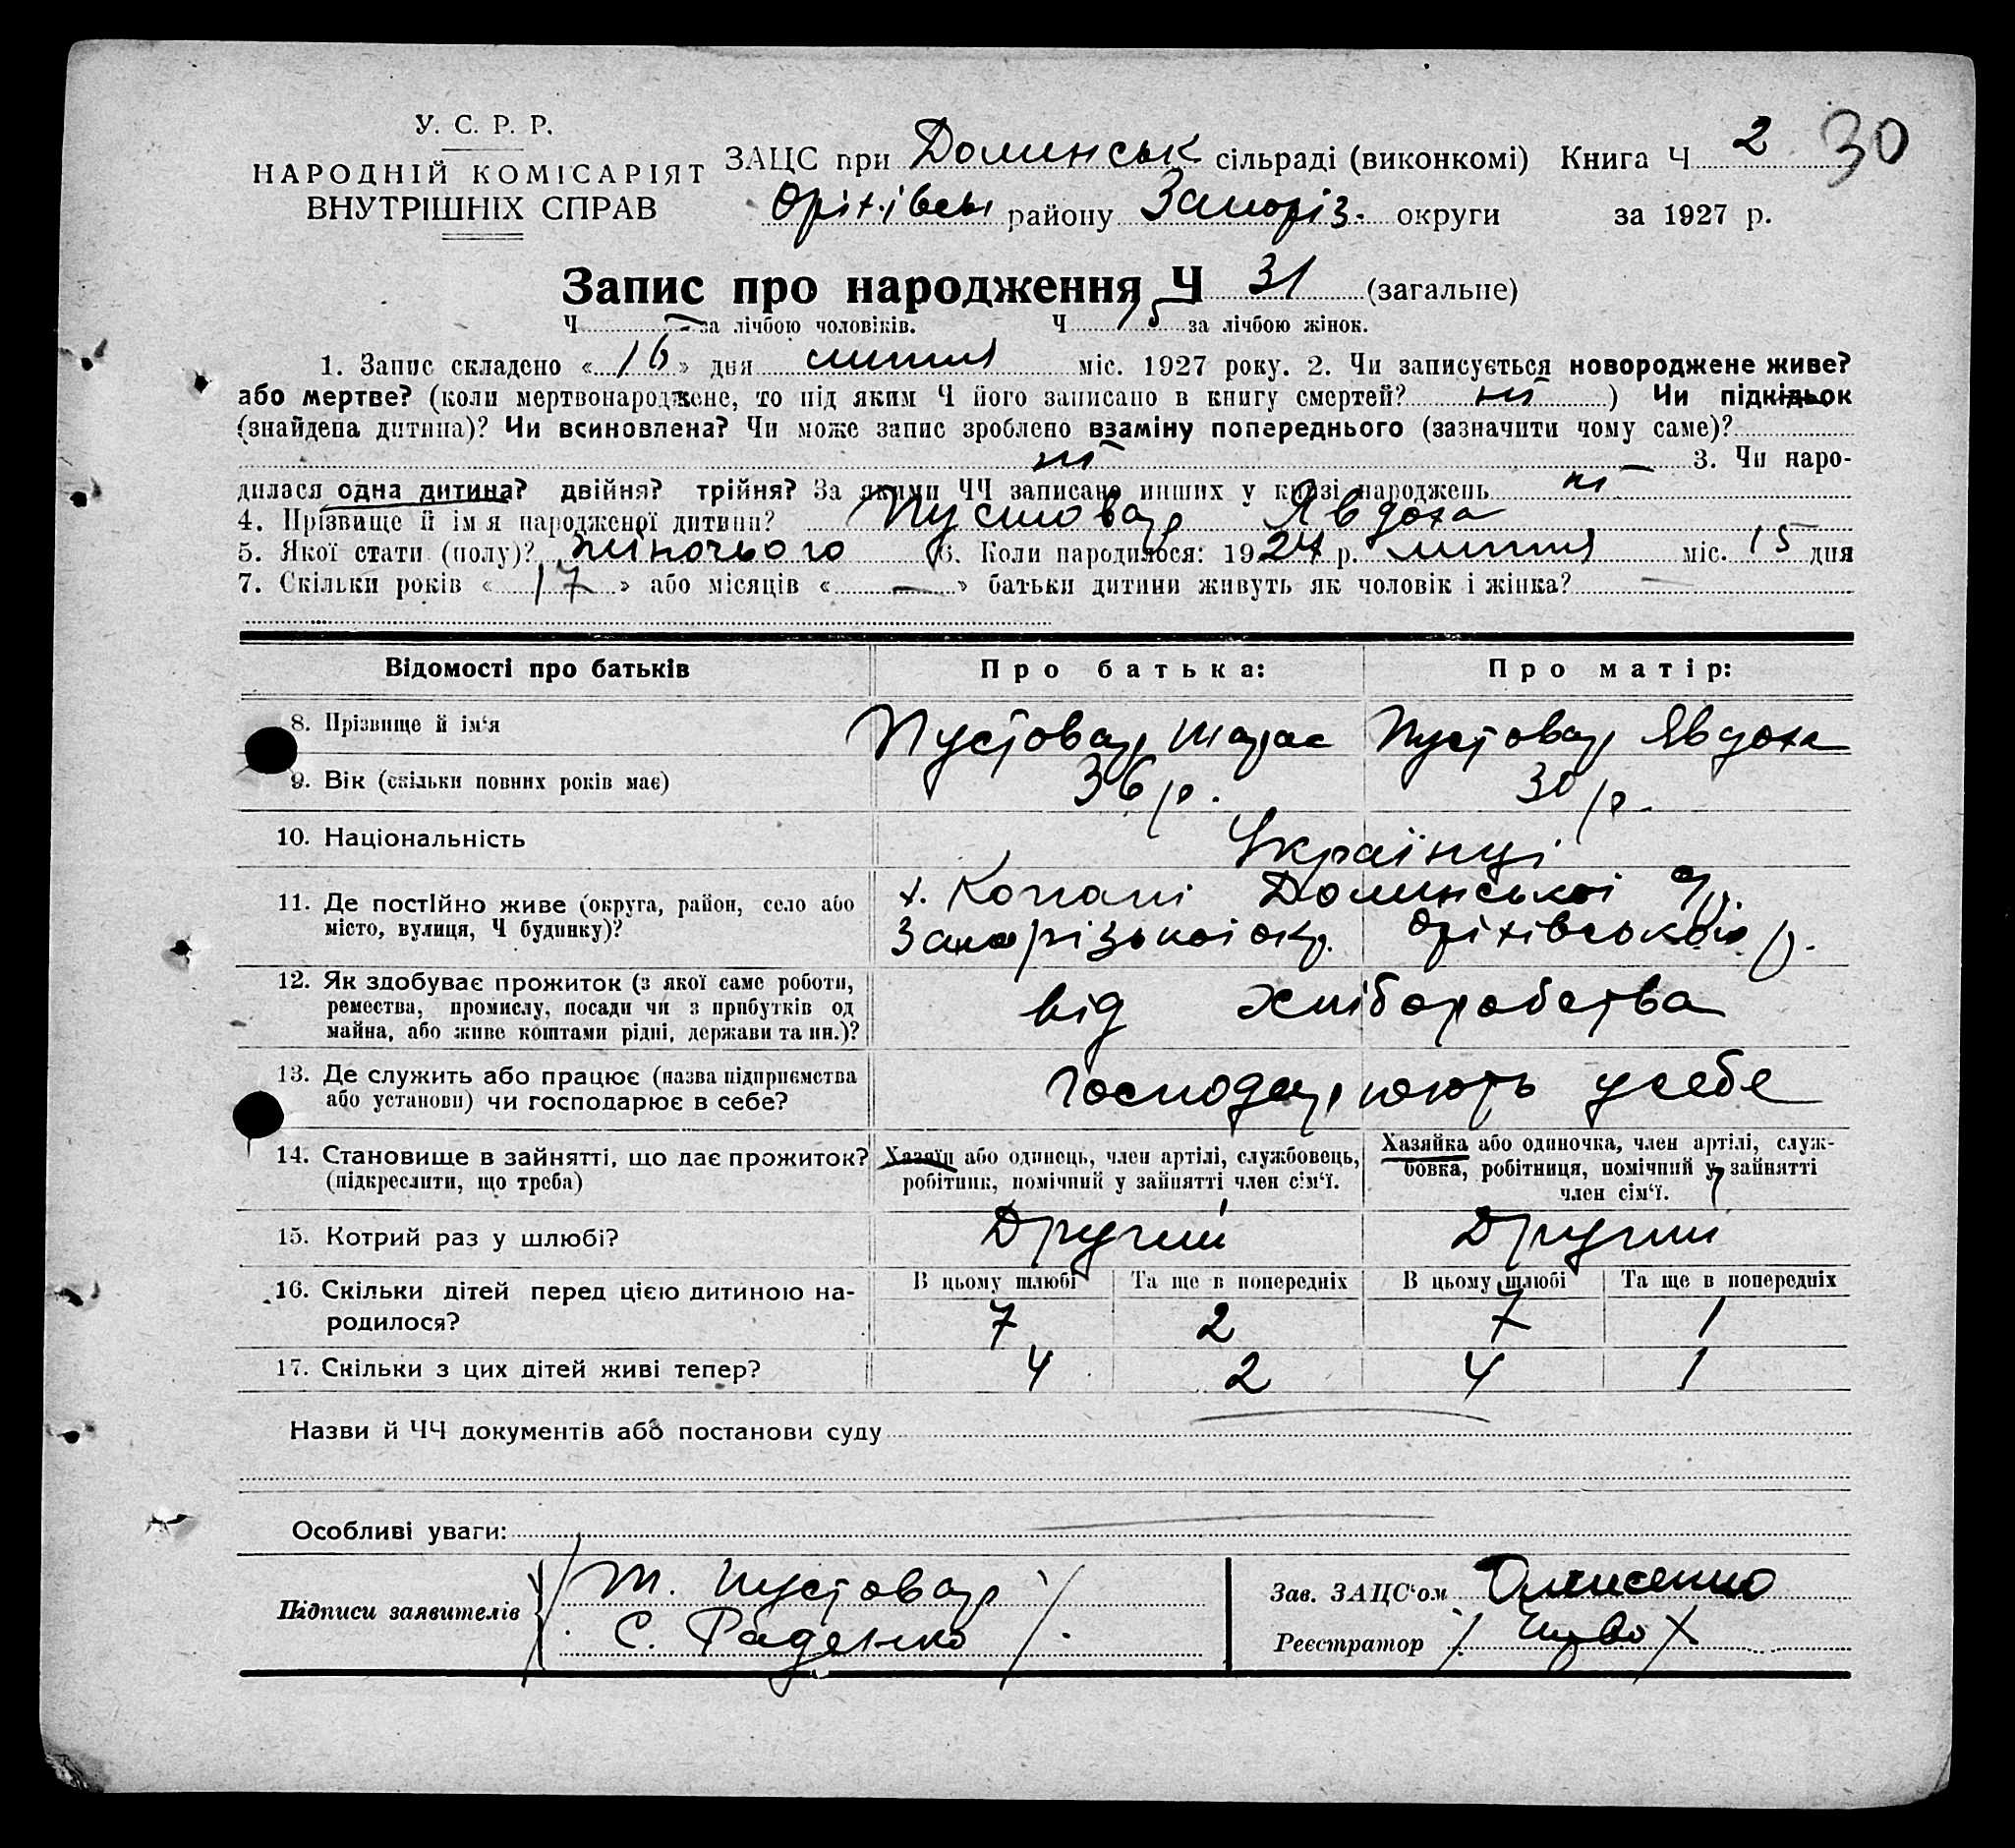 У. С. Р. Р.
НАРОДНІЙ КОМІСАРІЯТ
ВНУТРІШНІХ СПРАВ
ЗАЦС при Долинськ сільраді (виконкомі) Книга Ч 2 30
Оріхівськ району Запоріз. округи за 1927 р.
Запис про народження Ч 31 (загальне)
Ч — за лічбою чоловіків. Ч 15 за лічбою жінок.
1. Запис складено «16» дня липня міс. 1927 року. 2. Чи записується новороджене живе?
або мертве? (коли мертвонароджене, то під яким Ч його записано в книгу смертей? ні ) Чи підкідьок
(знайдена дитина)? Чи всиновлена? Чи може запис зроблено взаміну попереднього (зазначити чому саме)?
ні — 3. Чи наро-
дилася одна дитина? двійня? трійня? За якими ЧЧ записано инших у книзі народжень ні
4. Прізвище й ім я народженої дитини? Пустовар Явдоха
5. Якої стати (полу)? жіночого 6. Коли народилося: 1924 р. липня міс. 15 дня
7. Скільки років «17» або місяців «—» батьки дитини живуть як чоловік і жінка? —
Відомості про батьків Про батька: Про матір:
8. Прізвище й ім‘я Пустовар Тарас Пустовар Явдоха
9. Вік (скільки повних років має) 36 р. 30 р.
10. Національність Українці
11. Де постійно живе (округа, район, село або
місто, вулиця, Ч будинку)?
х. Копані Долинської с/р.
Запорізької окр. Оріхівського р.
12. Як здобуває прожиток (з якої саме роботи,
ремества, промислу, посади чи з прибутків од
майна, або живе коштами рідні, держави та ин.)?
від хліборобства
13. Де служить або працює (назва підприємства
або установи) чи господарює в себе?
господарюють у себе
14. Становище в зайнятті, що дає прожиток?
(підкреслити, що треба)
Хазяїн або одинець, член артілі, службовець,
робітник, помічний у зайнятті член сім‘ї.
Хазяйка або одиночка, член артілі, служ-
бовка, робітниця, помічний у зайнятті
член сім‘ї.
15. Котрий раз у шлюбі? Другий Другий
16. Скільки дітей перед цією дитиною на-
родилося?
В цьому шлюбі Та ще в попередніх В цьому шлюбі Та ще в попередніх
7 2 7 1
17. Скільки з цих дітей живі тепер? 4 2 4 1
Назви й ЧЧ документів або постанови суду
Особливі уваги:
Підписи заявителів
Т. Пустовар
С. Раденко
Зав. ЗАЦС‘ом
Реєстратор